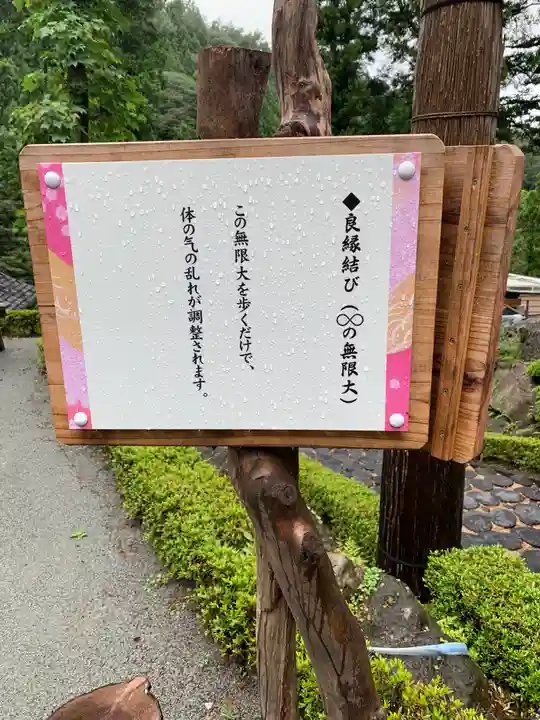 ◆良縁結び（∞の無限大）
この無限大を歩くだけで、
体の气の乱れが調整されます。